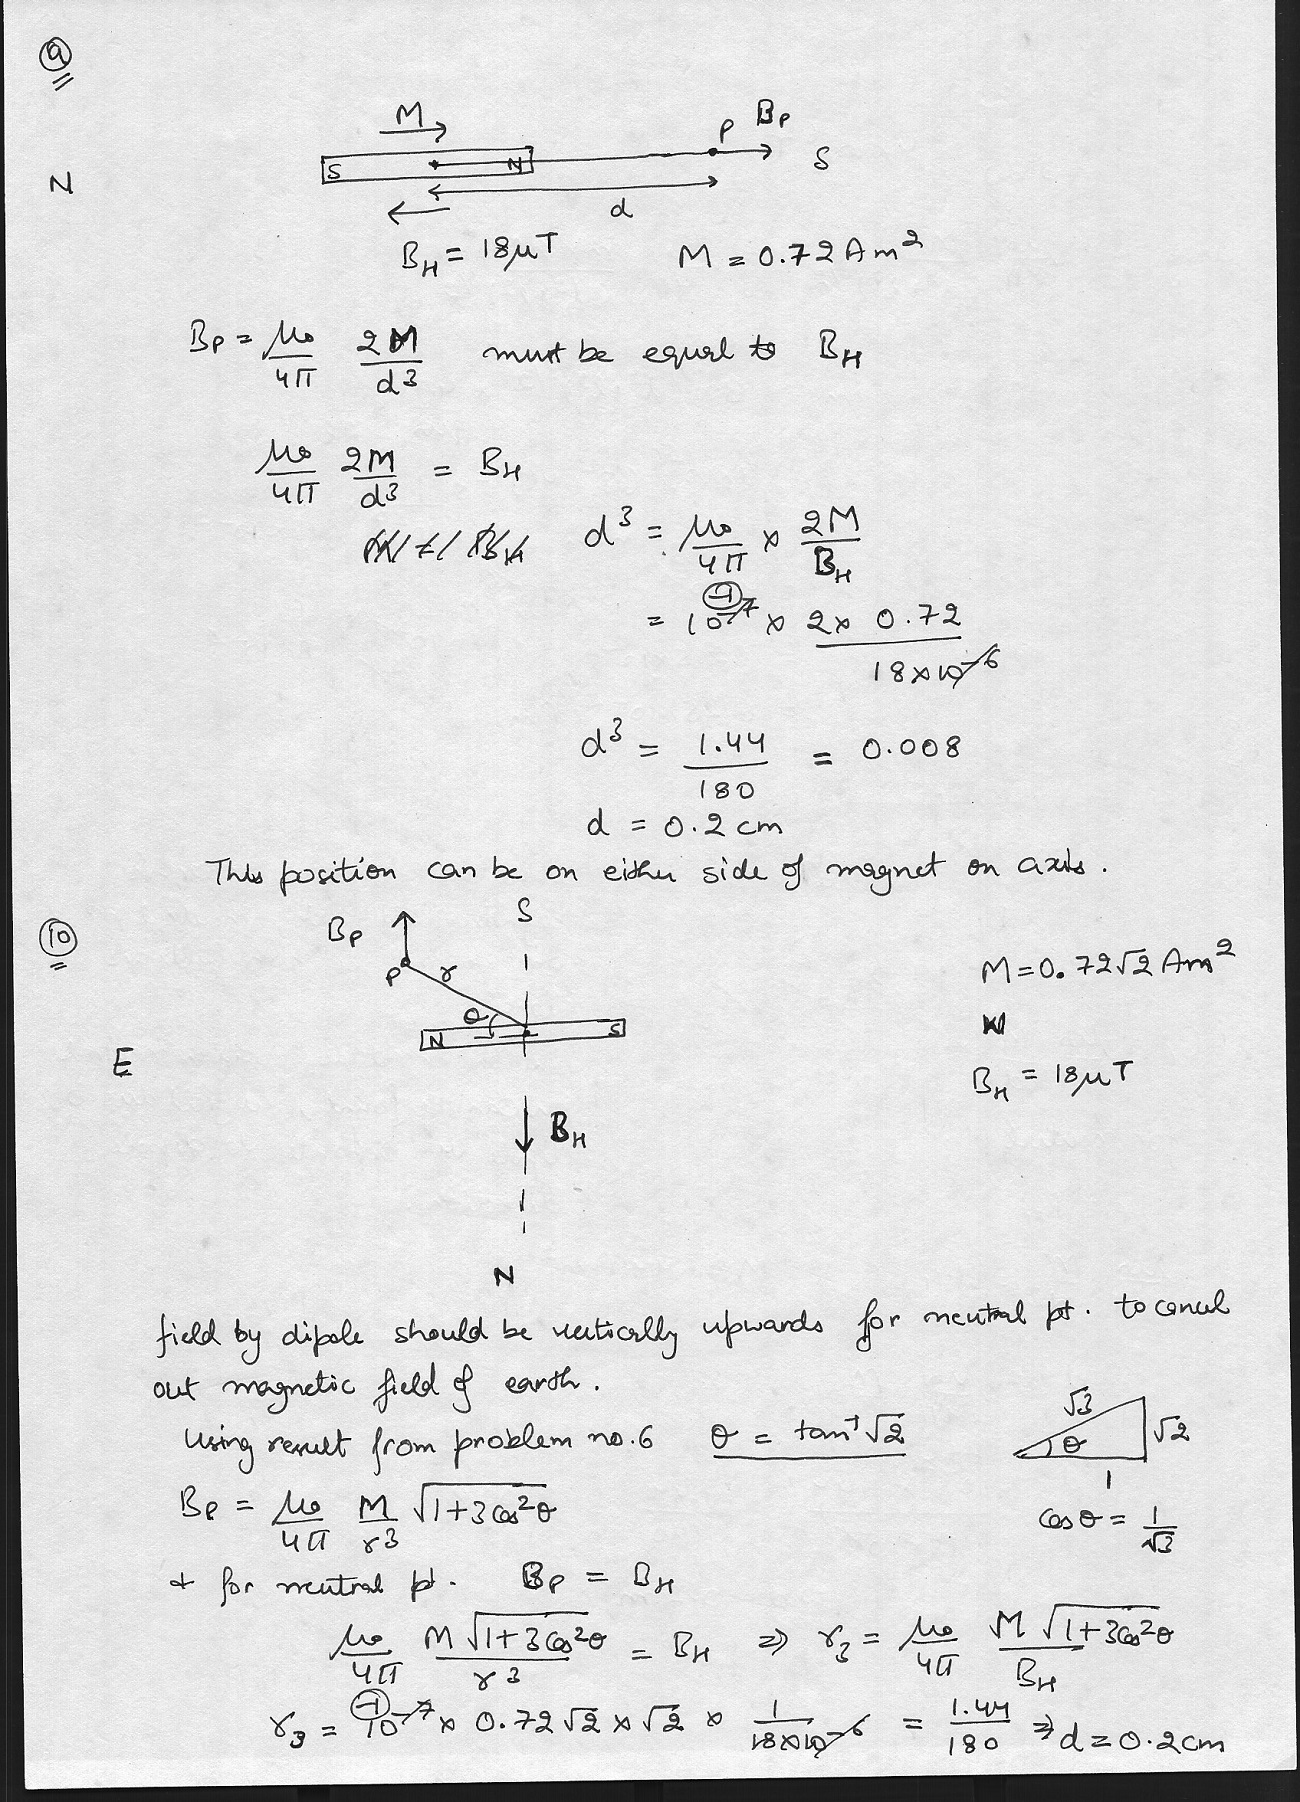 9
M
P Bp
S N S
N
d
B_H = 18μT M = 0.72 Am²
Bp = μ₀/4π 2M/d³ must be equal to B_H
μ₀/4π 2M/d³ = B_H
d³ = μ₀/4π × 2M/B_H
-1
= 10⁻⁷ × 2 × 0.72 / 18×10⁻⁶
d³ = 1.44/180 = 0.008
d = 0.2 cm
This position can be on either side of magnet on axis.
10
Bp S
P r
M = 0.72√2 Am²
θ
N S
E
B_H = 18μT
B_H
N
field by dipole should be vertically upwards for neutral pt. to cancel
out magnetic field of earth.
Using result from problem no. 6 θ = tan⁻¹√2
√3 √2
θ
1
Bp = μ₀/4π M/r³ √1+3cos²θ
cosθ = 1/√3
+ for neutral pt. Bp = B_H
μ₀/4π M√1+3cos²θ / r³ = B_H ⇒ r₃ = μ₀/4π M√1+3cos²θ / B_H
-1
r₃ = 10⁻⁷ × 0.72√2 × √2 × 1/18×10⁻⁶ = 1.44/180 ⇒ d = 0.2 cm